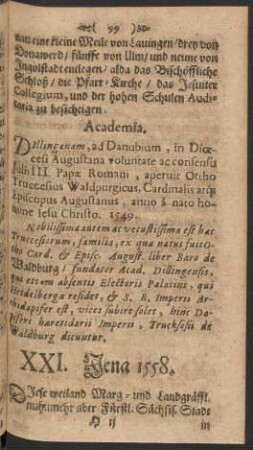 ( 99 )
nau eine kleine Meile von Lauingen / drey von
Donawerd / fünffe von Ulm / und neune von
Ingolstadt entlegen / alda das Bischöffliche
Schloß / die Pfarr-Kirche / das Jesuiter
Collegium, und der hohen Schulen Audi-
toria zu besichtigen.
Academia.
Dillinganam, ad Danubium, in Diœ-
cesi Augustana voluntate ac consensu
Julii III Papæ Romani, aperuit Ottho
Truccesius Waldpurgicus, Cardinalis atq;
Episcopus Augustanus, anno â nato ho-
mine Iesu Christo. 1549.
Nobilissima autem ac vetustissima est hæc
Truccesiorum, familia, ex qua natus fuit
Card. & Episc. August. liber Baro de
Waldburg / fundator Acad. Dillingensis,
qui etiam absentis Electoris Palatini, qui
Heidelberga residet, & S. R. Imperii Ar-
chidapifer est, vices subire solet, hinc Da-
pifori hæretidarii Imperii, Trucksosii de
Waldburg dicuntur.
XXI. Jena 1558.
Diese weiland Marg- und Landgräffl.
nuhnmehr aber Fürstl. Sächsis. Stadt
ij in